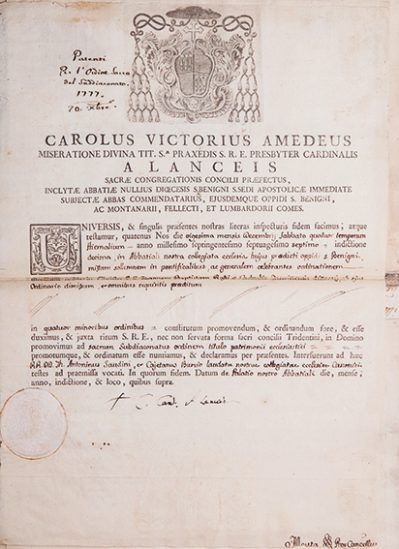 Patenti
Pr l'Ordine Sacro
del Suddiaconato
1777.
20 Xbre
CAROLUS VICTORIUS AMEDEUS
MISERATIONE DIVINA TIT. S.æ PRAXEDIS S. R. E. PRESBYTER CARDINALIS
A LANCEIS
SACRÆ CONGREGATIONIS CONCILII PRÆFECTUS,
INCLYTÆ ABBATIÆ NULLIUS DIŒCESIS S. BENIGNI S. SEDI APOSTOLICÆ IMMEDIATE
SUBJECTÆ ABBAS COMMENDATARIUS, EJUSDEMQUE OPPIDI S. BENIGNI,
AC MONTANARII, FELLECTI, ET LUMBARDORII COMES.
UNIVERSIS, & singulis præsentes nostras literas inspecturis fidem facimus; atque
testamur, quatenus Nos die vigesima mensis Decembris Sabbato quatuor temporum
Hiemalium anno millesimo septingentesimo septuagesimo septimo indictione
decima, in Abbatiali nostra collegiata ecclesia hujus prædicti oppidi S. Benigni
missam solemnem in pontificalibus ac generalem celebrantes ordinationem
Ordinario dimissum, omnibus requisitis præditum
in quatuor minoribus ordinibus constitutum promovendum, & ordinandum fore, & esse
duximus, & juxta ritum S. R. E., nec non servata forma sacri concilii Tridentini, in Domino
promovimus ad sacrum Subdiaconatus ordinem titulo patrimonii ecclesiastici
promotumque, & ordinatum esse nuntiamus, & declaramus per præsentes. Interfuerunt ad hæc
RR. DD. Antoninus et Cajetanus laudatæ nostræ collegiatæ ecclesiæ Canonici
testes ad præmissa vocati. In quorum fidem. Datum de Palatio nostro Abbatiali die, mense,
anno, indictione, & loco, quibus supra.
+ C. Card. de Lanceis